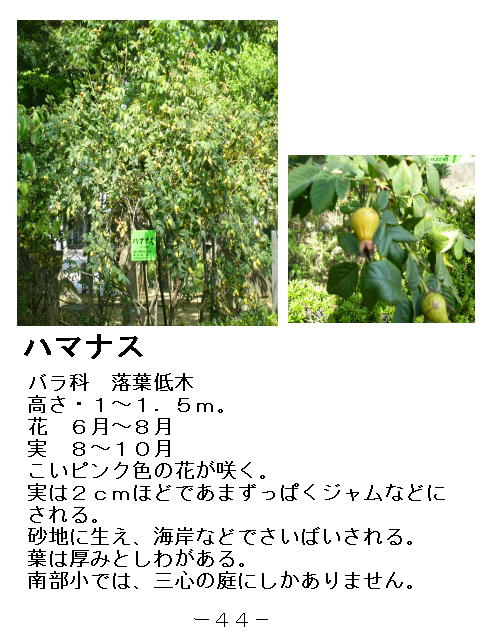 ハマナス
ハマナス
バラ科　落葉低木
高さ・１～１．５ｍ。
花　６月～８月
実　８～１０月
こいピンク色の花が咲く。
実は２ｃｍほどであまずっぱくジャムなどに
される。
砂地に生え、海岸などでさいばいされる。
葉は厚みとしわがある。
南部小では、三心の庭にしかありません。
－４４－